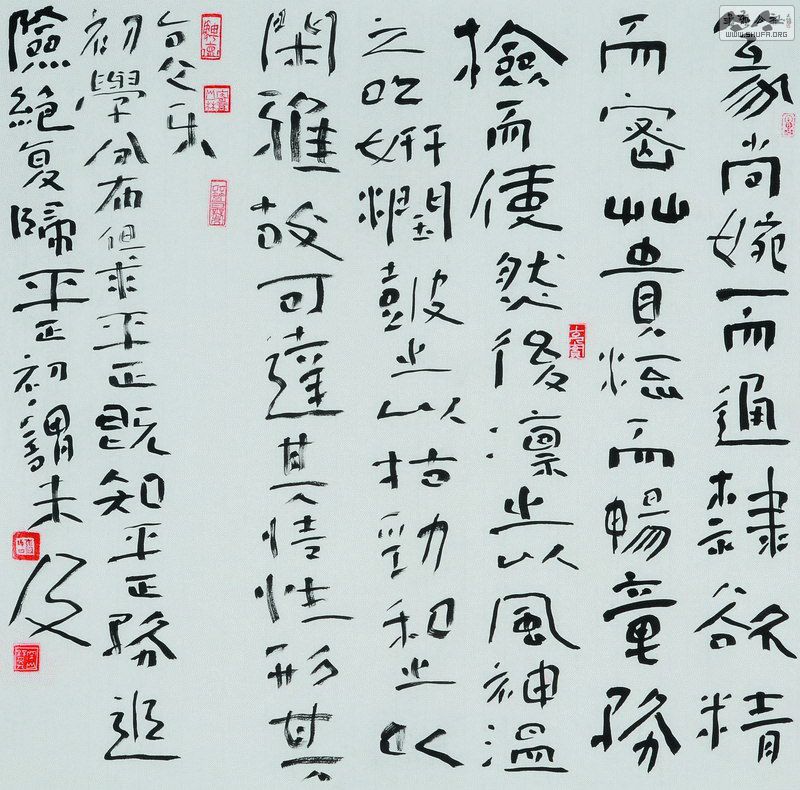 篆尚婉而通隸欲精
而密艸貴流而暢章務
檢而便然後凛之以風神溫
之以妍潤鼓之以枯勁和之以
閑雅故可達其情性形其
哀乐
初學分布但求平正既知平正務追
險絕复歸平正初謂未及
WWW.SHUFA.ORG